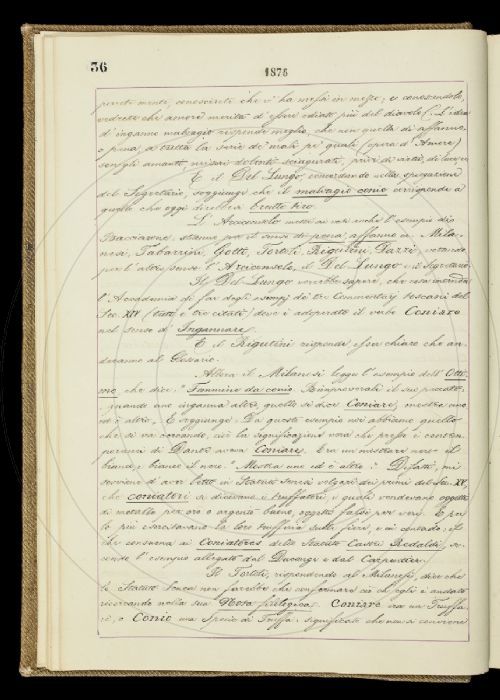 36
1875
parete mente, conoscerete che vi ha messi in mezzo; e conoscendolo,
vedrete che amore merita d'essere odiato più del diavolo (. L'idea
d'inganno malvagio risponde meglio, che non quella di affanno,
o pena, a tutta la serie de' mali pe' quali (opera d'Amore)
son gli amanti dolenti sciagurati, privi di virtù, di luce
E il Del Lungo, concordando nella spiegazione
del Segretario, soggiunge che il malvagio conio corrisponde a
quello che oggi direbbesi brutto tiro.
L'Arciconsolo mette ai voti anche l'esempio di
stanno per il senso di pena, affanno ec. Mila-
nesi, Tabarrini, Gotti, Tortoli, Rigutini, Dazzi, votando
per l'altro senso l'Arciconsolo, il Del Lungo e il Segretario
Il Del Lungo vorrebbe sapere, che cosa intenda
l'Accademia di far degli esempj de' tre Commentarj toscani del
Sec. XIV (tutti e tre citati) dove è adoperato il verbo Coniare
nel senso d'Ingannare.
E il Rigutini risponde esser chiaro che an-
deranno al Glossario.
Allora il Milanesi legge l'esempio dell'Otti-
mo che dice: "Fammine da conio. Rimproverali il suo peccato.
quando uno inganna altro, quello si dice Coniare, mostra uno
ed è altro. E soggiunge: Da questo esempio noi abbiamo quello
che si va cercando, cioè la significazione vera che presso i contem-
poranei di Dante aveva Coniare. Era un mostrare nero il
bianco, bianco il nero: "Mostra uno ed è altro." Difatti, mi
sovviene d'aver letto in Statuti Senesi volgari dei primi del Sec. XV,
che coniatori si dicevano i truffatori, i quali vendevano oggetti
di metallo per oro o argento buono, oggetti falsi per veri. E per
lo più esercitavano la loro trufferia sulle fiere, e ai contado; il
che consuona ai Coniatores dello Statuto Castri Redaldi, se-
condo l'esempio allegato dal Ducange e dal Carpentier.
Il Tortoli, rispondendo al Milanesi, dice che
lo Statuto Senese non farebbe che confermare ciò ch'egli è andato
ricercando nella sua Nota filologica. Coniare era un Truffa-
re, e Conio una specie di Truffa: significato che non si conviene